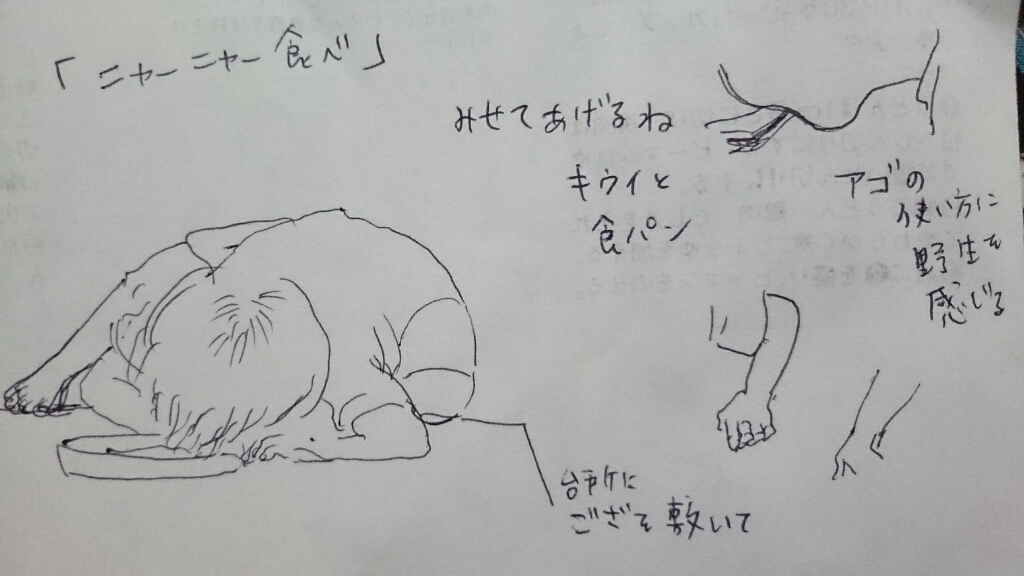 「ニャーニャー食べ」
みせてあげるね
キウイと
食パン
アゴの
使い方に
野生を
感じる
台所に
ござを敷いて